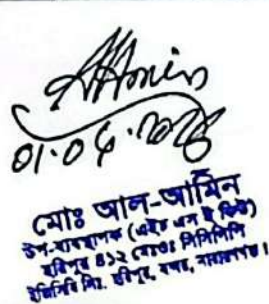 AlAmin
মোঃ আল-আমিন
উপ-ব্যবস্থাপক (এইচ এস ই
হরিপুর ৪১২ মেঃওঃ সিসিপিপি
ইজিসিবি লিঃ, হরিপুর, বন্দর, নারায়ণগঞ্জ।